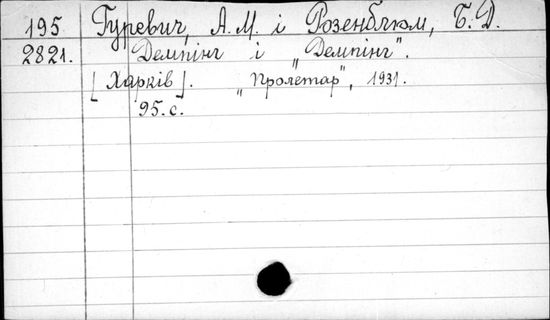 195 Гуревич, А.М. і Розенблюм, Б.Д.
2821. Демпінг і "Демпінг".
[Харків]. "Пролетар", 1931.
95.с.